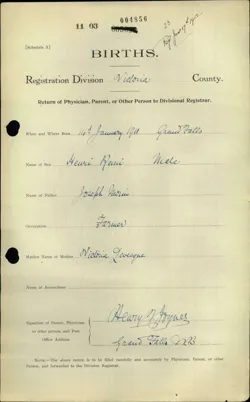 11 03
004856
23
[Schedule A]
BIRTHS.
Registration Division Victoria County.
Return of Physician, Parent, or Other Person to Divisional Registrar.
When and Where Born 14th January 1911 Grand Falls
Name of Son Henri Remi Male
Name of Father Joseph Morin
Occupation Farmer
Maiden Name of Mother Victoria Levesque
Name of Accoucheur
Signature of Parent, Physician
or other person, and Post
Office Address
Henry
Grand Falls
NOTE—The above return is to be filled carefully and accurately by Physician, Parent, or other
Person, and forwarded to the Division Registrar.